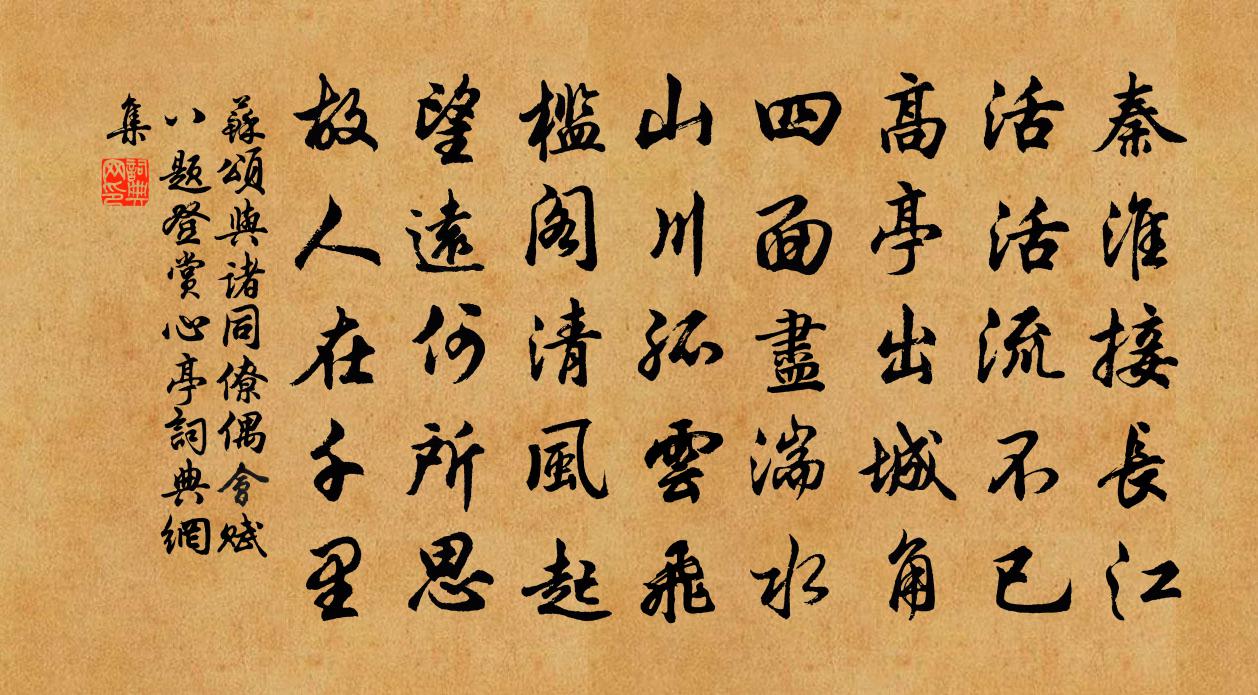 秦淮接長江
活活流不已
高亭出城角
四面盡湍水
山川孤雲飛
檻閣清風起
望遠何所思
故人在千里
蘇頌與諸同僚偶會賦
八題登賞心亭詞典網
集
詞典
网印